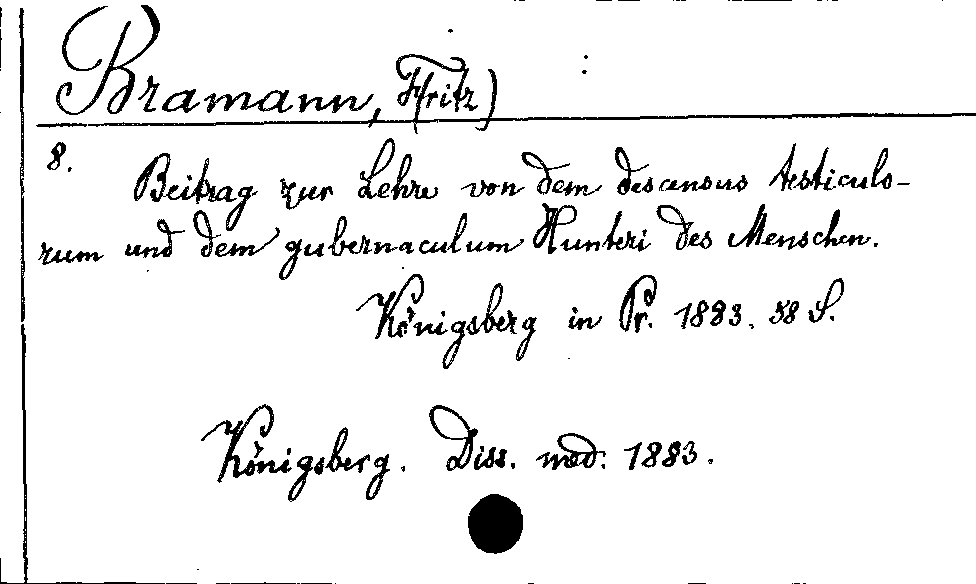 Bramann, Fritz)
8.
Beitrag zur Lehre von dem descensus testiculo-
rum und dem gubernaculum Hunteri des Menschen.
Königsberg in Pr. 1883. 38 S.
Königsberg. Diss. med. 1883.